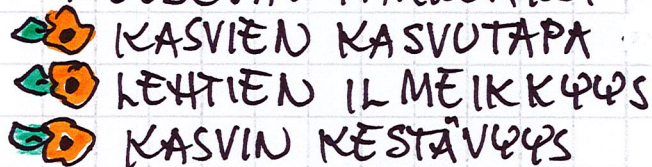 KASVIEN KASVUTAPA
LEHTIEN ILMEIKKYYS
KASVIN KESTÄVYYS